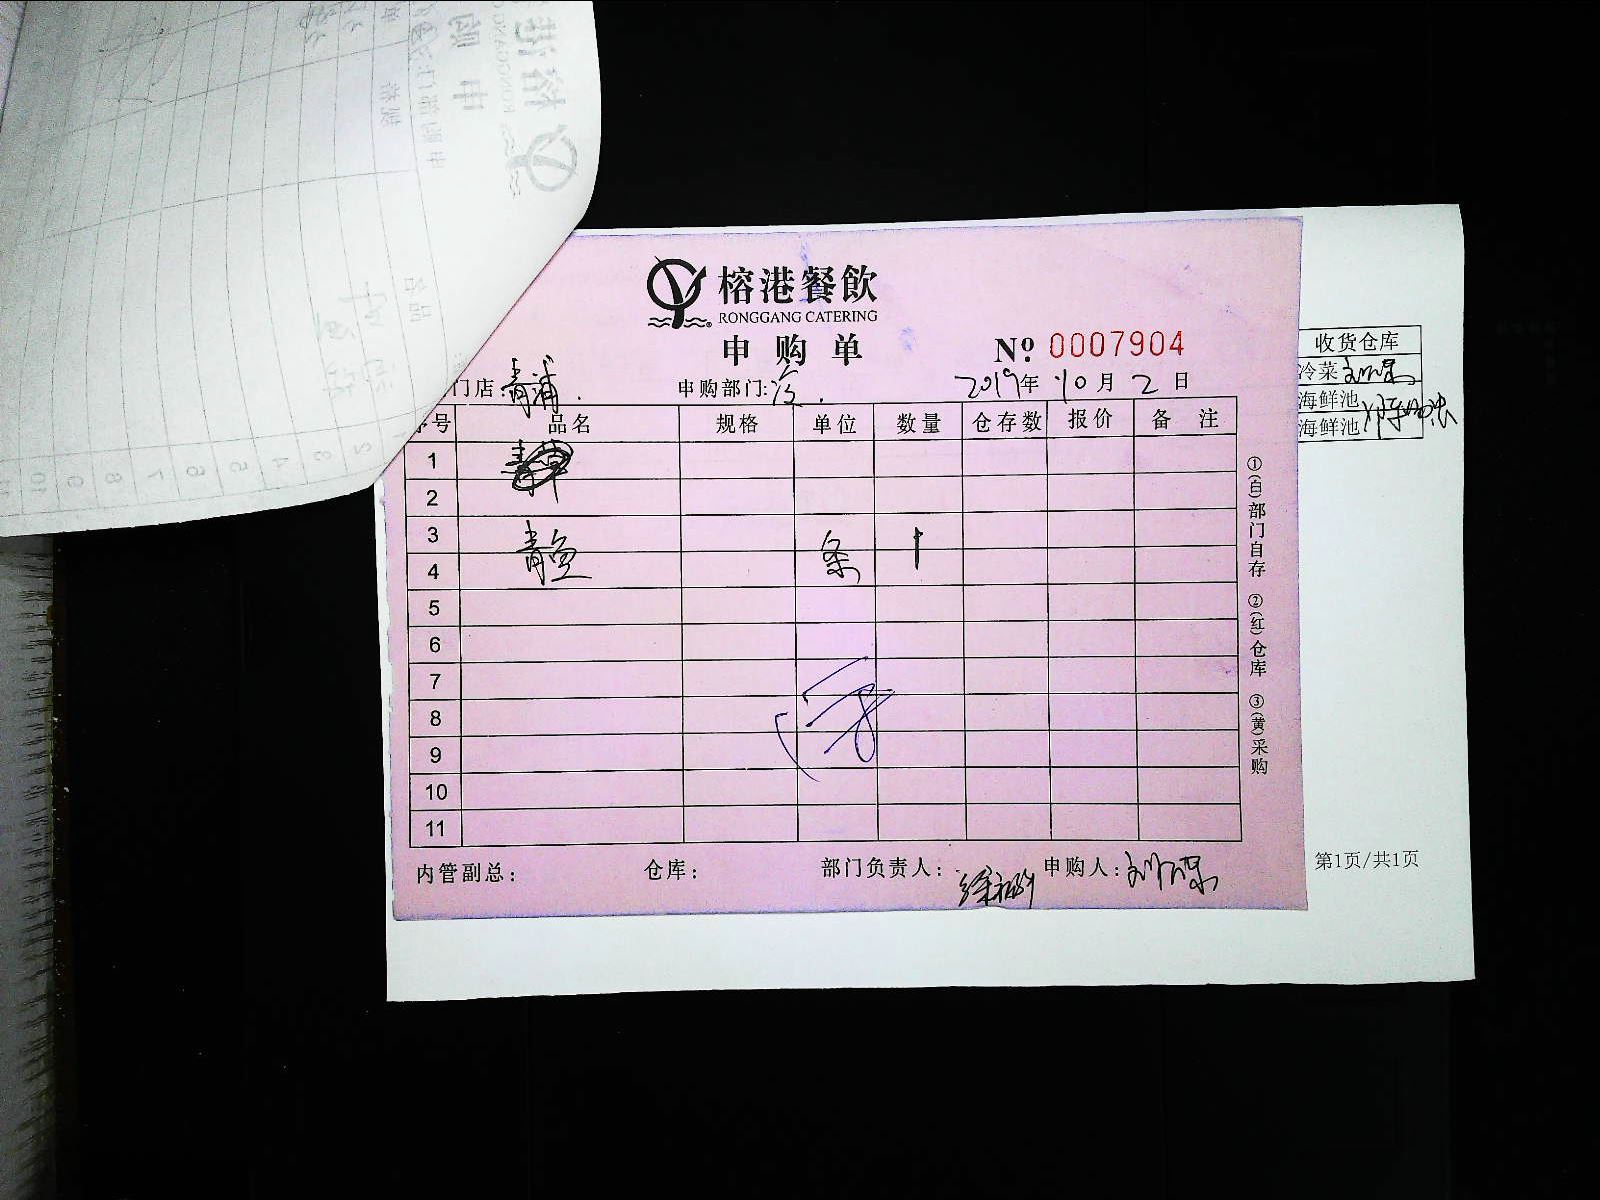 榕港餐飲
RONGGANG CATERING
申购单
№ 0007904
门店:青浦. 申购部门:冷. 2019年10月2日
序号 品名 规格 单位 数量 仓存数 报价 备注
1
2
3 青鱼 条 1
4
5
6
7
8
9
10
11
内管副总: 仓库: 部门负责人: 申购人:
①(白)部门自存 ②(红)仓库 ③(黄)采购
收货仓库
冷菜
海鲜池
海鲜池
第1页/共1页